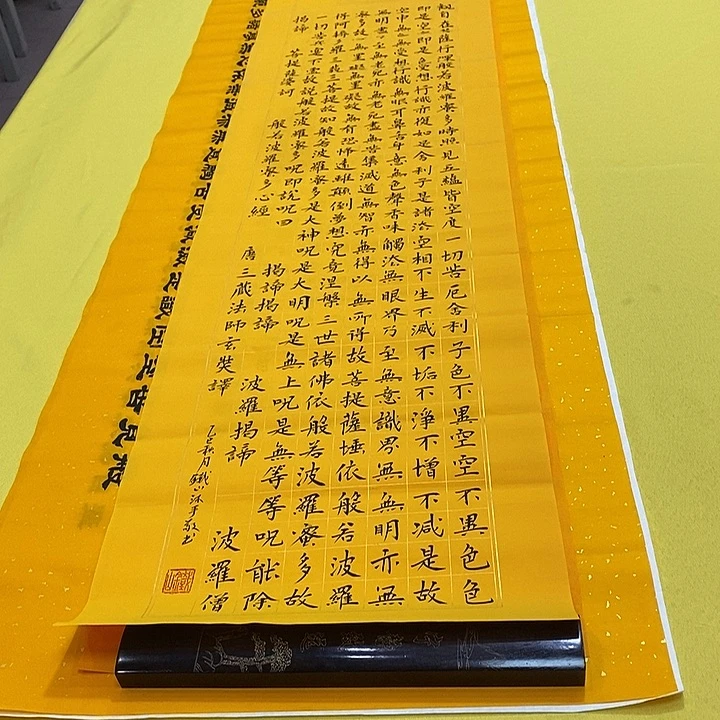 觀自在菩薩行深般若波羅蜜多時照見五蘊皆空度一切苦厄舍利子色不異空空不異色色
即是空空即是色受想行識亦復如是舍利子是諸法空相不生不滅不垢不淨不增不减是故
空中無色無受想行識無眼耳鼻舌身意無色聲香味觸法無眼界乃至無意識界無無明亦無
無明盡乃至無老死亦無老死盡無苦集滅道無智亦無得以無所得故菩提薩埵依般若波羅
蜜多故心無罣礙無罣礙故無有恐怖遠離顛倒夢想究竟涅槃三世諸佛依般若波羅蜜多故
得阿耨多羅三藐三菩提故知般若波羅蜜多是大神呪是大明呪是無上呪是無等等呪能除
一切苦真實不虛故説般若波羅蜜多呪即説呪曰 揭諦揭諦 波羅揭諦 波羅僧
揭諦 菩提薩婆訶 般若波羅蜜多心經 唐三藏法師玄奘譯
乙巳秋月鐵山沐手敬书